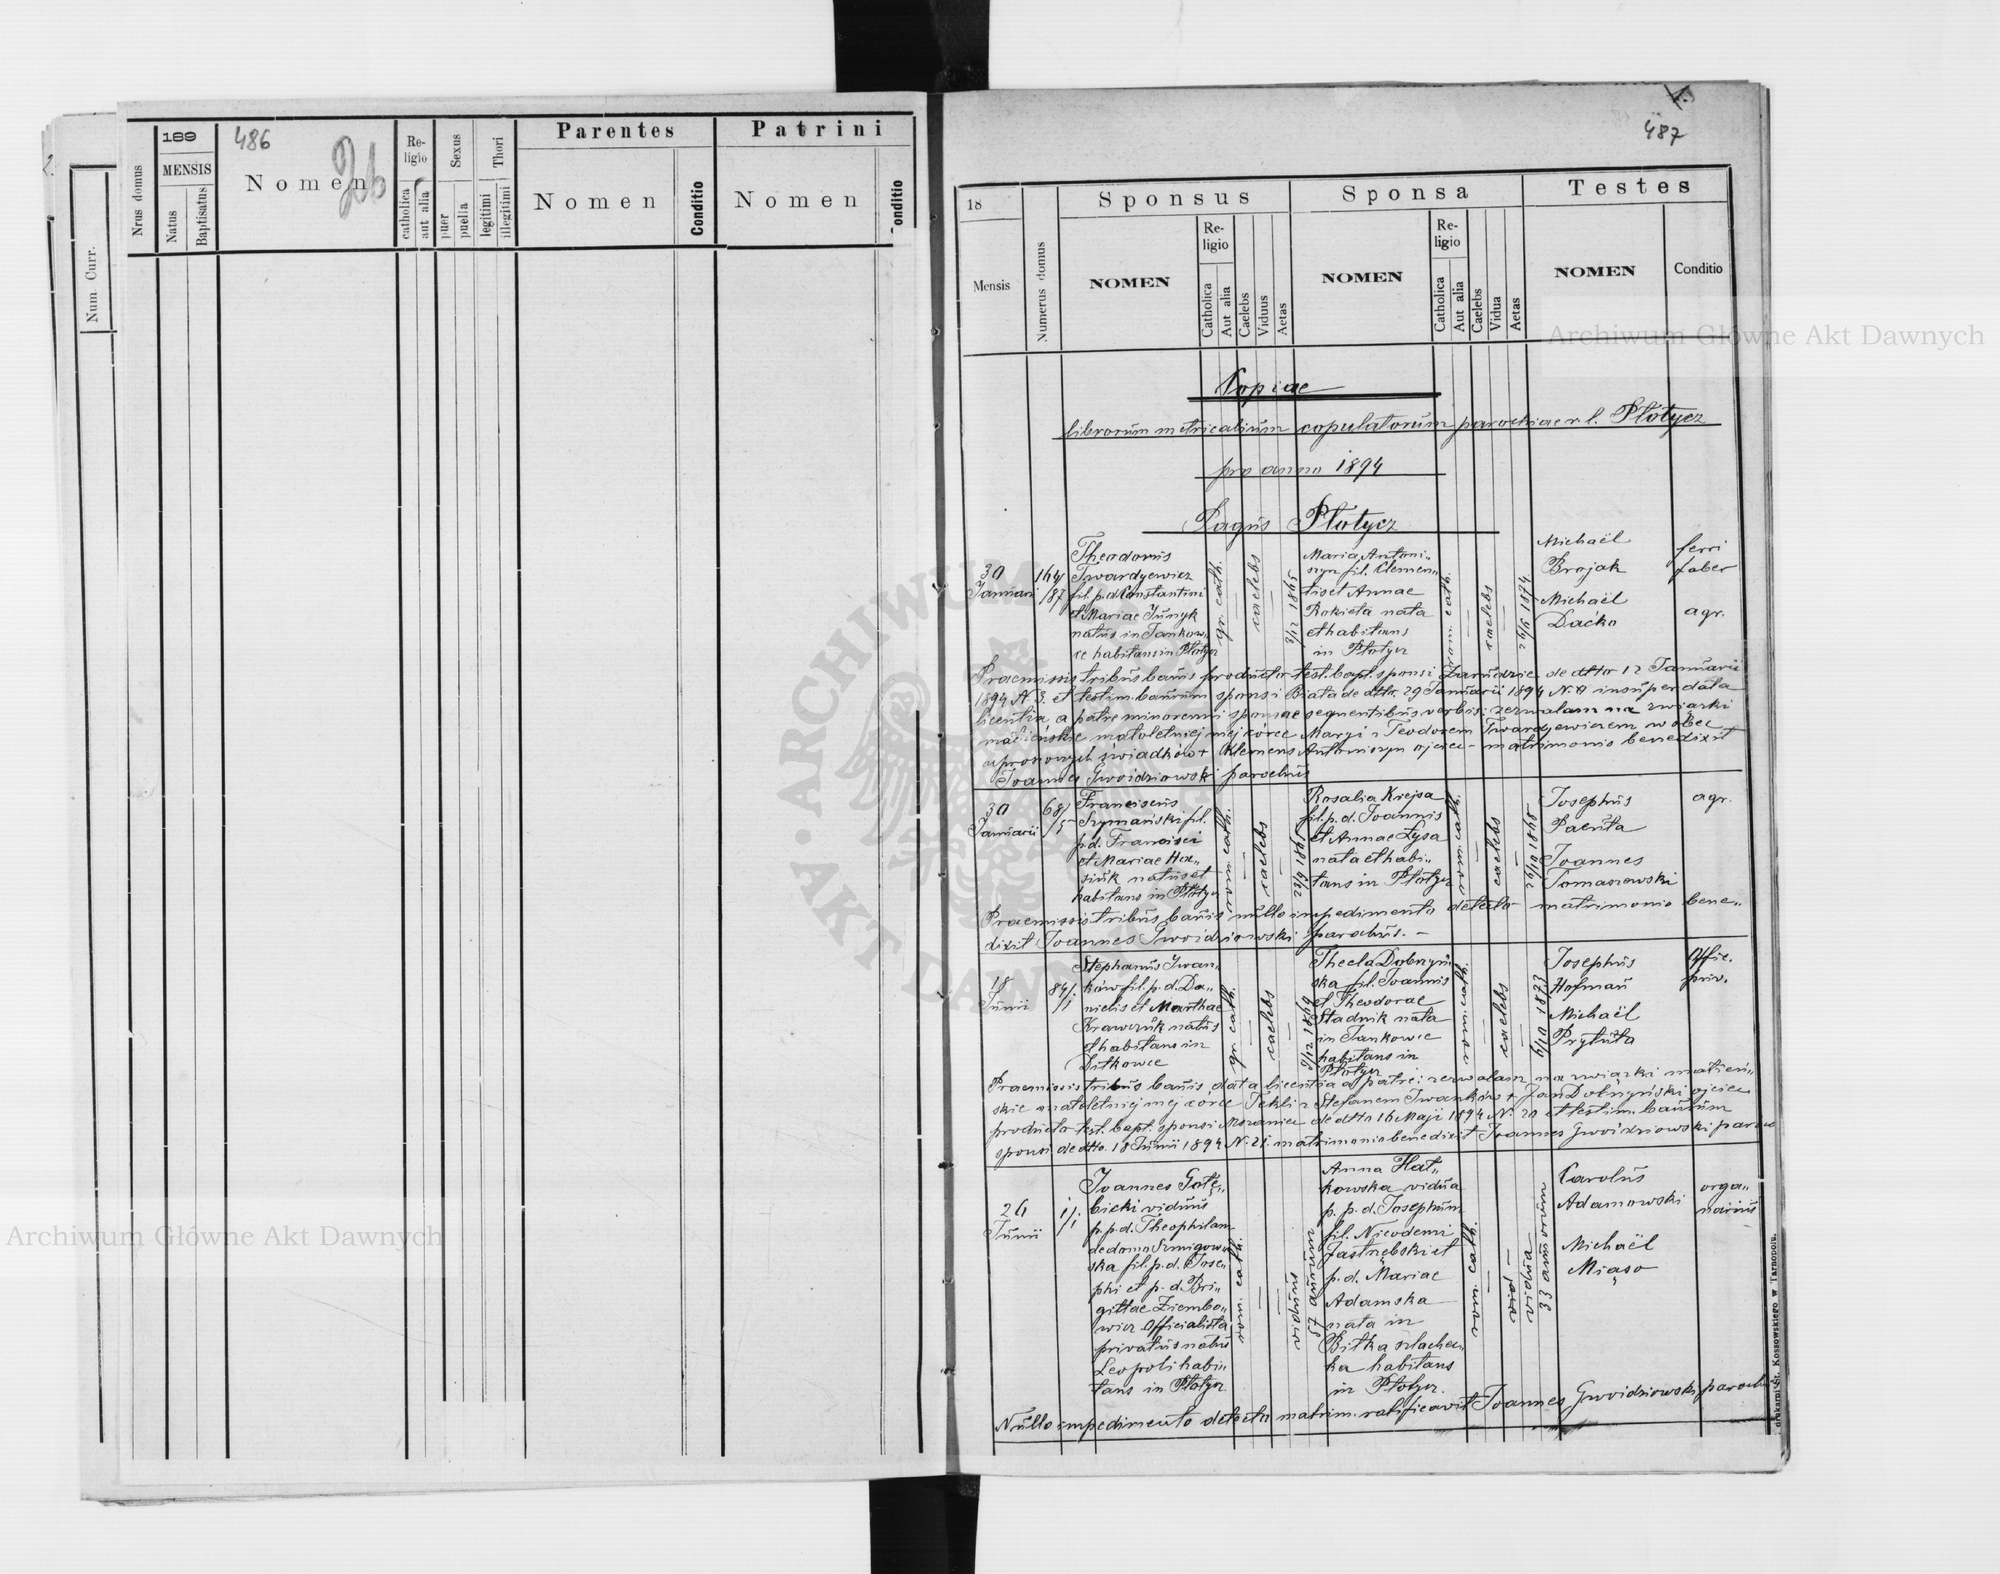 486
26
189
Nrus domus
MENSIS
Natus
Baptisatus
Nomen
Religio
catholica
aut alia
Sexus
puer
puella
Thori
legitimi
illegitimi
Parentes
Nomen
Conditio
Patrini
Nomen
onditio
Num. Curr.
2.
1.
487
18
Mensis
Numerus domus
Sponsus
NOMEN
Re-
ligio
Catholica
Aut alia
Caelebs
Viduus
Aetas
Sponsa
NOMEN
Re-
ligio
Catholica
Aut alia
Caelebs
Vidua
Aetas
Testes
NOMEN
Conditio
Copiae
librorum metricalium copulatorum parochiae r. l. Płotycz
pro anno 1894
Pagus Płotycz
30
Januarii
164/
/87
Theodorus
Twardyewicz
fil. p.d. Constantini
et Mariae Junyk
natus in Jankow„
ce habitans in Płotycz
gr. cath.
caelebs
3/12 1865
Maria Antoni„
szyn fil. Clemen„
tis et Annae
Rokieta nata
et habitans
in Płotycz
rom. cath.
caelebs
Michaël
Brojak
Michaël
Daćko
ferri
faber
agr.
Praemissis tribus bannis producto test. bapt. sponsi Zarudzie de dtto 12 Januarii
1894 N 3. et testim. bannum sponsi Biała de dtto. 29 Januarii 1894 N. 8 insuper data
licentia a patre minorenni sponsae sequentibus verbis: zezwalam na związki
małżeńskie małoletniej mej córce Maryi z Teodorem Twardyewiczem wobec
uproszonych świadków + Klemens Antoniszyn ojciec – matrimonio benedixit
Joannes Gwoździowski parochus
30
Januarii
68/
/5
Franciscus
Szymański fil.
p.d. Francisci
et Mariae Ha„
siuk natus et
habitans in Płotycz
rom. cath.
caelebs
23/9 1865
Rosalia Kiejsa
fil. p.d. Joannis
et Annae Łysa
nata et habi„
tans in Płotycz
rom. cath.
caelebs
26/10 1868
Josephus
Pacuta
Joannes
Tomaszewski
agr.
Praemissis tribus bannis nullo impedimento detecto matrimonio bene„
dixit Joannes Gwoździowski parochus. –
18
Junii
84/.
/1
Stephanus Iwan„
ków fil. p.d. Da„
nielis et Marthae
Krawczuk natus
et habitans in
Ditkowce
gr. cath.
caelebs
9/12 1869
Thecla Dobrzyń„
ska fil. Joannis
et Theodorae
Stadnik nata
in Jankowce
habitans in
Płotycz
rom. cath.
caelebs
6/10 1873
Josephus
Hofman
Michaël
Prytuła
offic.
priv.
Praemissis tribus bannis data licentia a patre: zezwalam na związki małżeń„
skie małoletniej mej córce Tekli z Stefanem Iwanków + Jan Dobrzyński ojciec
producto test. bapt. sponsi Mszaniec de dtto 16 Maji 1894 N. 20 et testim. bannum
sponsi de dtto. 18 Junii 1894 N. 21. matrimonio benedixit Joannes Gwoździowski paroch
26
Junii
1/.
/1
Joannes Gołę„
bicki viduus
p. p.d. Theophilam
de domo Szmigow„
ska fil. p.d. Jose„
phi et p.d. Bri„
gittae Ziembo„
wicz officialista
privatus natus
Leopoli habi„
tans in Płotycz
rom. cath.
viduus
57 annorum
Anna Hał„
kowska vidua
p. p.d. Josephum
fil. Nicodemi
Jastrzębski et
p.d. Mariae
Adamska
nata in
Bitka szlachec„
ka habitans
in Płotycz.
rom. cath.
vidua
33 annorum
Carolus
Adamowski
Michaël
Miąso
orga„
narius
Nullo impedimento detecto matrim. ratificavit Joannes Gwoździowski paroch
drukarni St. Kossowskiego w Tarnopolu.
Archiwum Główne Akt Dawnych
Archiwum Główne Akt Dawnych
ARCHIWUM
AKT DAWN